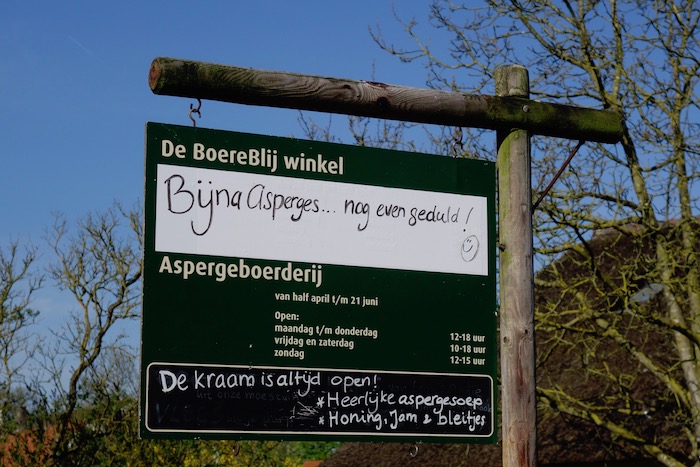 De BoereBlij winkel
Bijna asperges... nog even geduld!
Aspergeboerderij
van half april t/m 21 juni
Open:
maandag t/m donderdag 12-18 uur
vrijdag en zaterdag 10-18 uur
zondag 12-15 uur
De kraam is altijd open!
*Heerlijke aspergesoep
*Honing, Jam & bleitjes